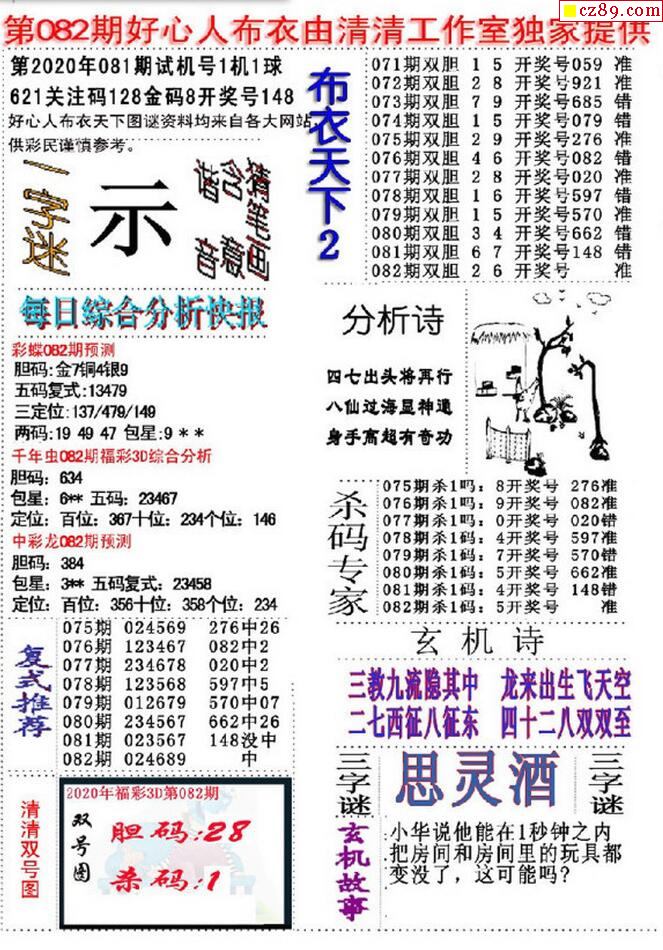 cz89.com
第082期好心人布衣由清清工作室独家提供
第2020年081期试机号1机1球
621关注码128金码8开奖号148
好心人布衣天下图谜资料均来自各大网站
供彩民谨慎参考。
一字迷
示
猜笔画
含意
谐音
布衣天下2
071期双胆 1 5 开奖号059 准
072期双胆 2 8 开奖号921 准
073期双胆 7 9 开奖号685 错
074期双胆 1 5 开奖号079 错
075期双胆 2 9 开奖号276 准
076期双胆 4 6 开奖号082 错
077期双胆 2 8 开奖号020 准
078期双胆 1 6 开奖号597 错
079期双胆 1 5 开奖号570 准
080期双胆 3 4 开奖号662 错
081期双胆 6 7 开奖号148 错
082期双胆 2 6 开奖号 准
每日综合分析快报
彩蝶082期预测
胆码:金7铜4银9
五码复式:13479
三定位:137/479/149
两码:19 49 47 包星:9 * *
千年虫082期福彩3D综合分析
胆码: 634
包星: 6** 五码: 23467
定位: 百位: 367十位: 234个位: 146
中彩龙082期预测
胆码: 384
包星: 3** 五码复式: 23458
定位: 百位: 356十位: 358个位: 234
分析诗
四七出头将再行
八仙过海显神通
身手高超有奇功
杀码专家
075期杀1吗: 8开奖号 276准
076期杀1吗: 9开奖号 082准
077期杀1吗: 0开奖号 020错
078期杀1码: 4开奖号 597准
079期杀1码: 7开奖号 570错
080期杀1码: 5开奖号 662准
081期杀1码: 4开奖号 148错
082期杀1码: 5开奖号 准
复式推荐
075期 024569 276中26
076期 123467 082中2
077期 234678 020中2
078期 123568 597中5
079期 012679 570中07
080期 234567 662中26
081期 023567 148没中
082期 024689 中
玄机诗
三教九流隐其中 龙来出生飞天空
二七西征八征东 四十二八双双至
三字谜
思灵酒
三字谜
清清双号图
2020年福彩3D第082期
双号图
胆码:28
杀码:1
玄机故事
小华说他能在1秒钟之内
把房间和房间里的玩具都
变没了，这可能吗?